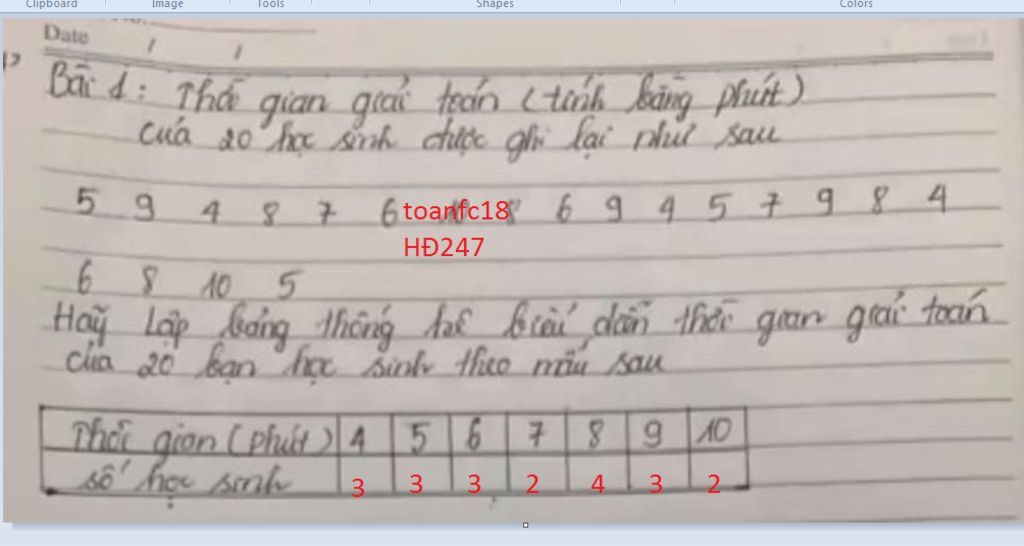 Clipboard Image Tools Shapes Colors
Date / /
Bài 1: Thời gian giải toán (tính bằng phút)
của 20 học sinh được ghi lại như sau
5 9 4 8 7 6 10 8 6 9 4 5 7 9 8 4
toanfc18
HĐ247
6 8 10 5
Hãy lập bảng thống kê biểu diễn thời gian giải toán
của 20 bạn học sinh theo mẫu sau
Thời gian (phút) 4 5 6 7 8 9 10
số học sinh 3 3 3 2 4 3 2